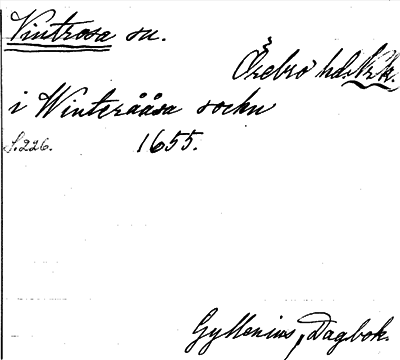 Vintrosa sn.
Örebro hd. Nrk.
i Winterååsa sockn
S. 226. 1655.
Gyllenius, Dagbok.